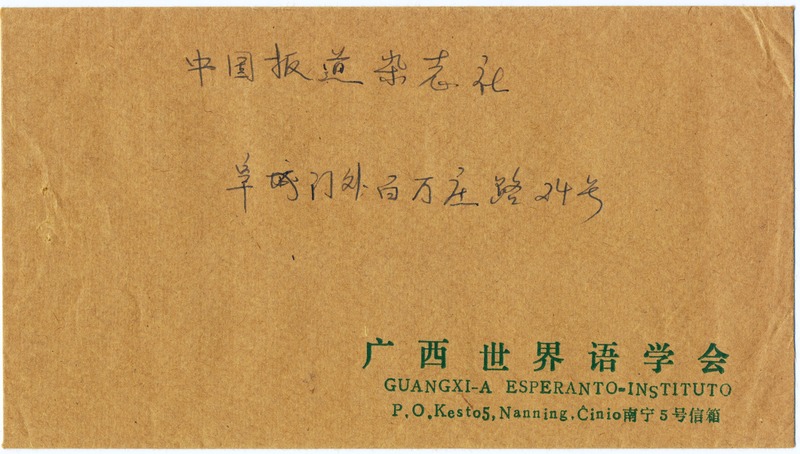 中国报道杂志社
阜城门外百万庄路24号
广西世界语学会
GUANGXI-A ESPERANTO-INSTITUTO
P.O.Kesto5, Nanning, Ĉinio南宁5号信箱